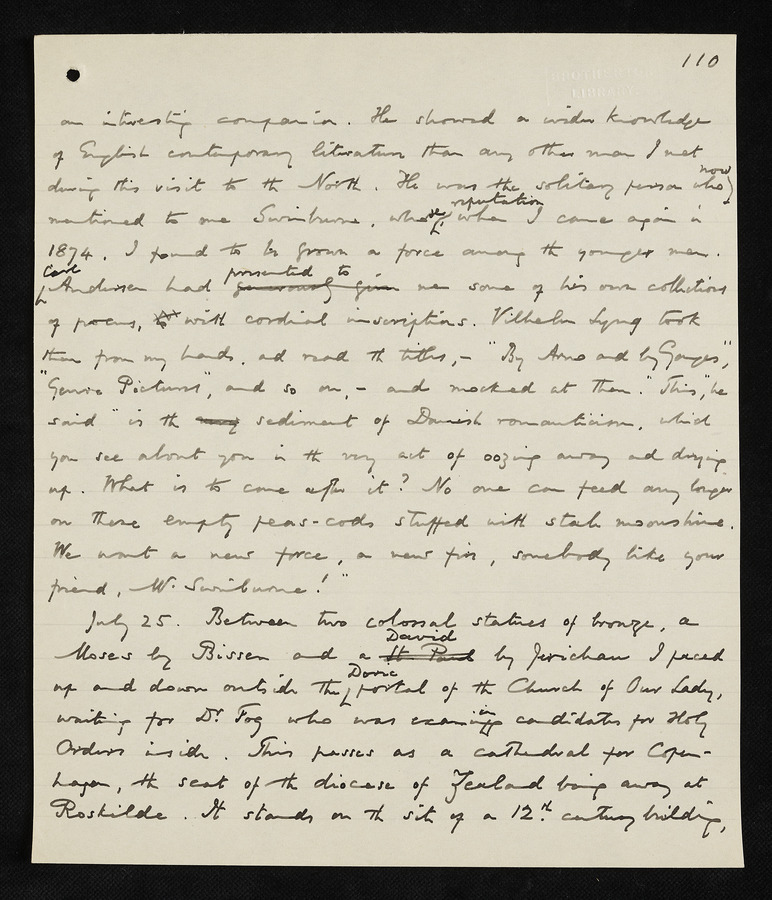 110
an interesting companion. He showed a wider knowledge
of English contemporary literature than any other man I met
during this visit to the North. He was the solitary person who now
mentioned to me Swinburne, whose reputation when I came again in
1874, I found to be grown a force among the younger men.
Carl Andersen had generously given presented to me some of his own collections
of poems, with cordial inscriptions. Vilhelm Lyng took
them from my hands, and read the titles, – "By Arno and by Ganges",
"Genre Pictures", and so on, – and mocked at them. "This," he
said "is the very sediment of Danish romanticism, which
you see about you in the very act of oozing away and drying
up. What is to come after it? No one can feed any longer
on these empty peas-cods stuffed with stale moonshine.
We want a new force, a new fire, somebody like your
friend, Mr. Swinburne!"
July 25. Between two colossal statues of bronze, a
Moses by Bissen and a St Paul David by Jerichau I paced
up and down outside the Doric portal of the Church of Our Lady,
waiting for Dr. Fog who was examining candidates for Holy
Orders inside. This passes as a cathedral for Copen-
hagen, the seat of the diocese of Zealand being away at
Roskilde. It stands on the site of a 12th century building,